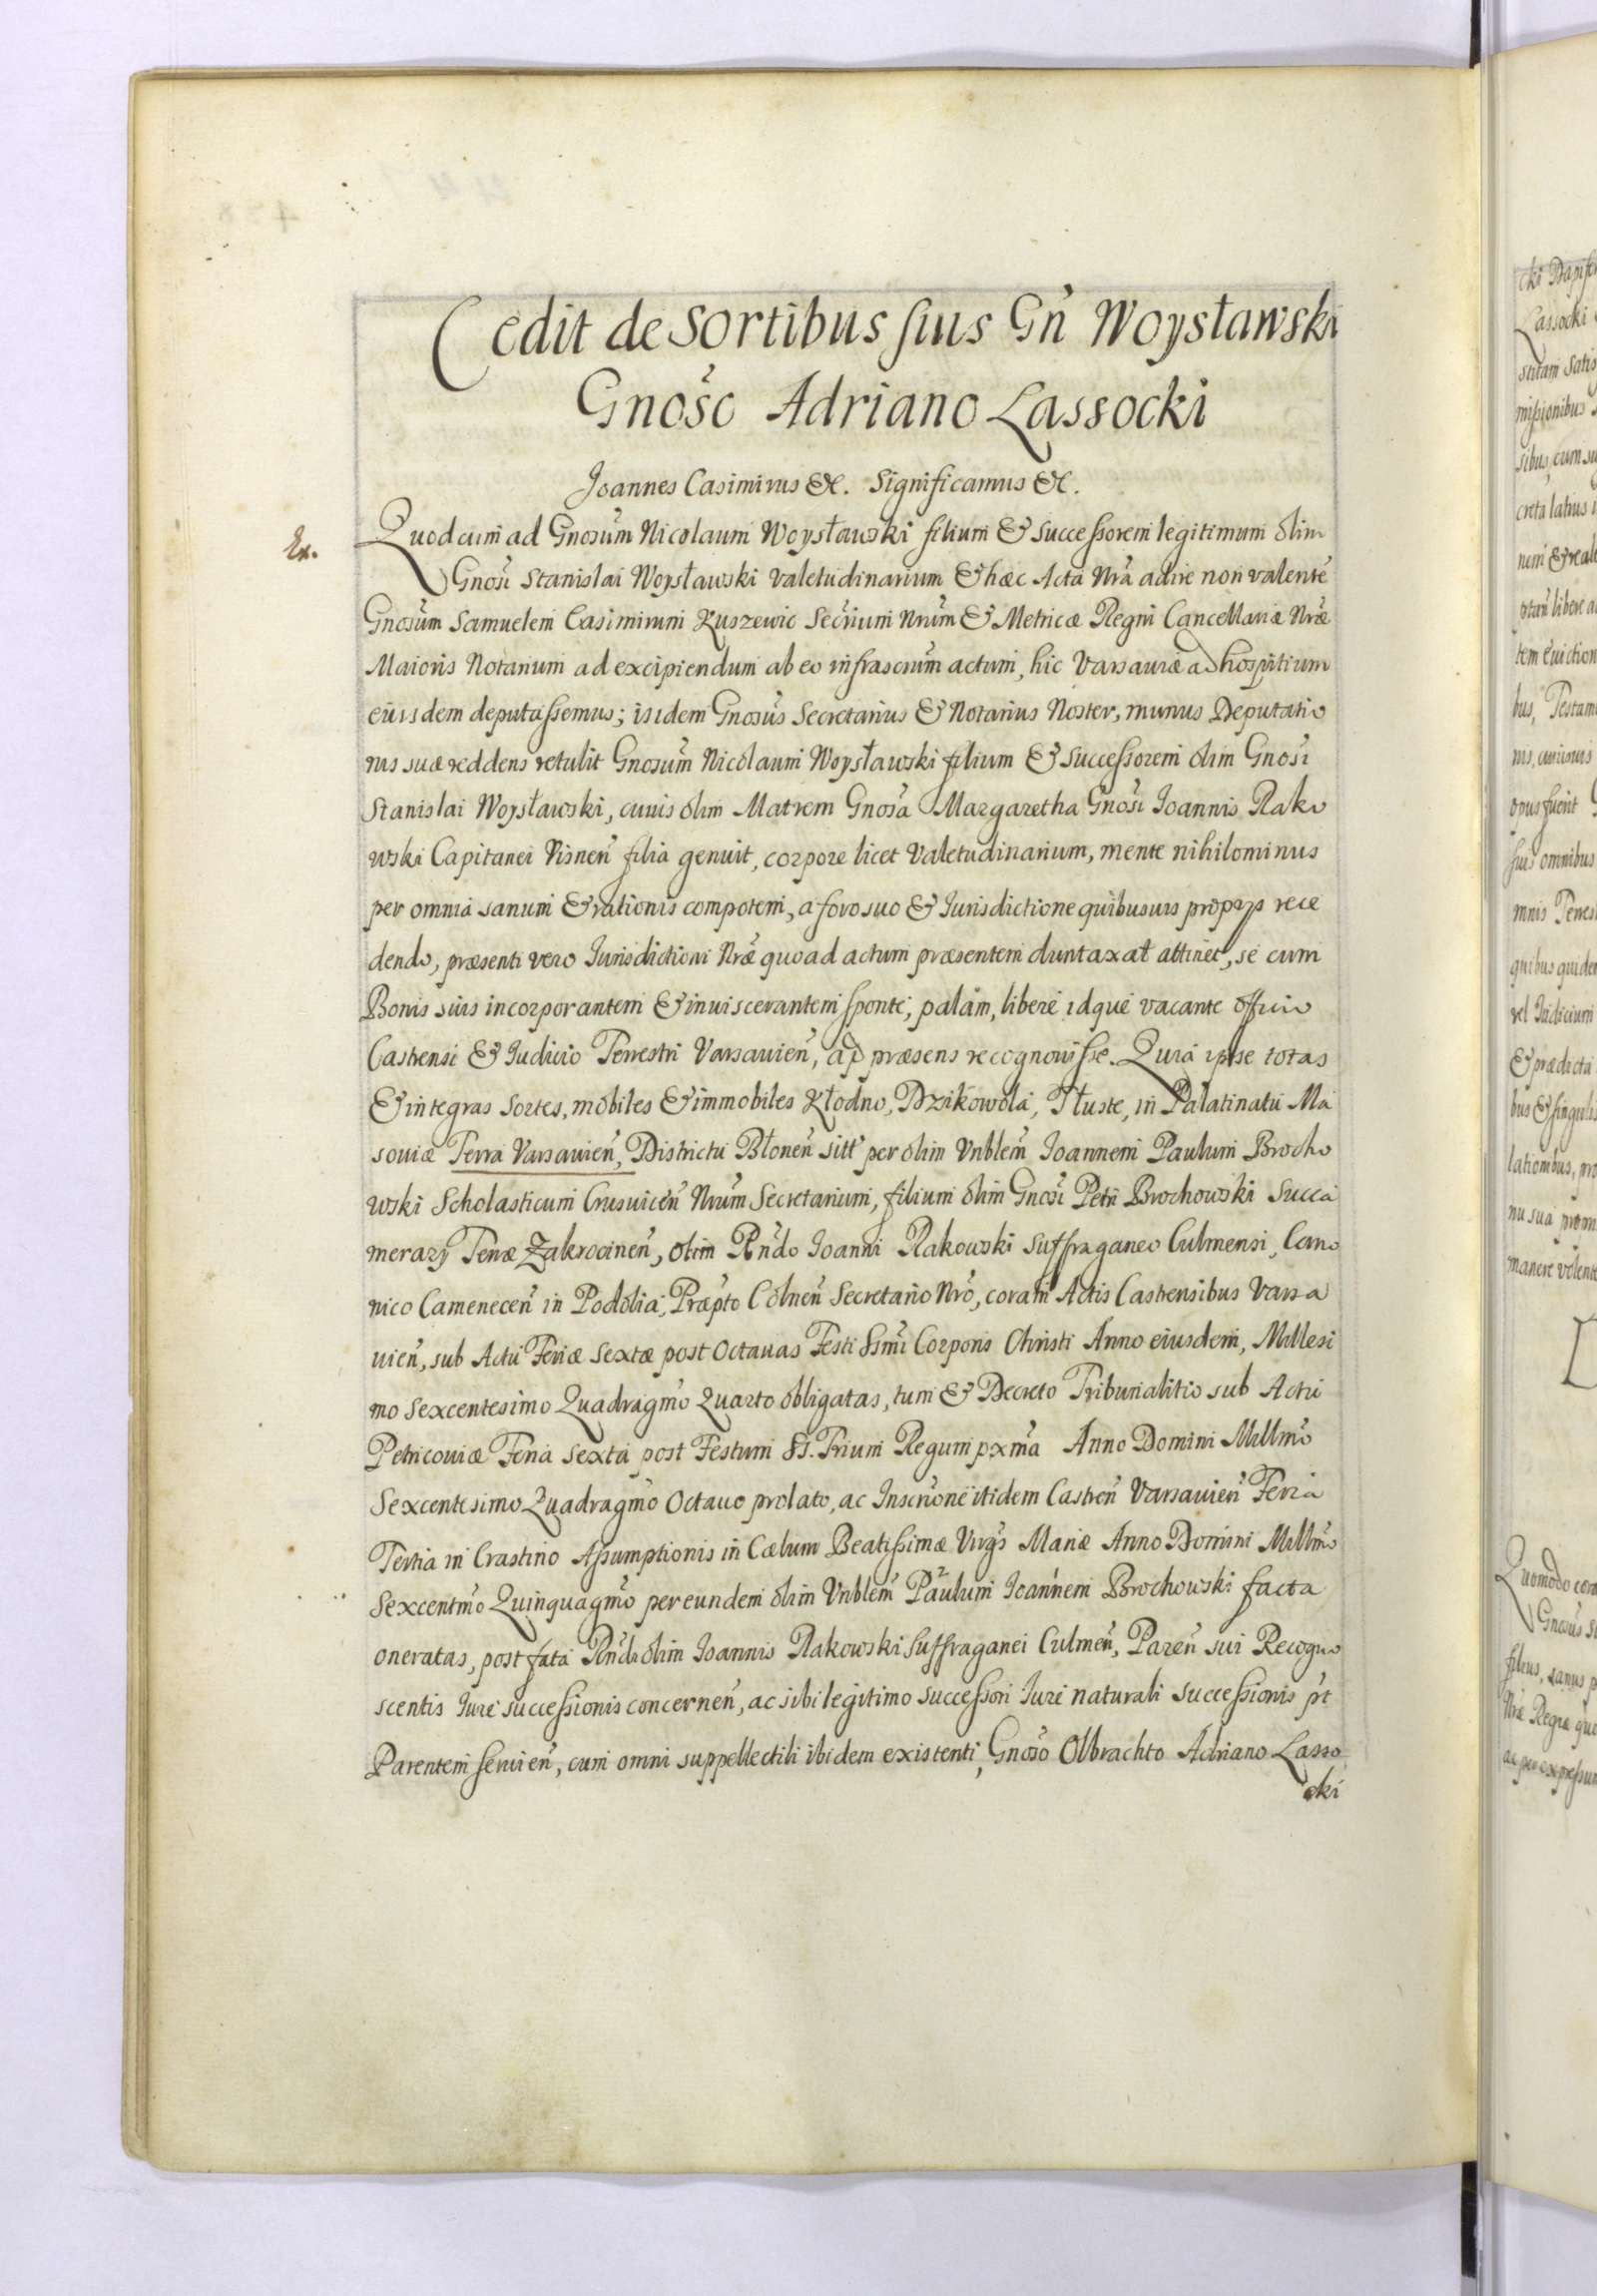 Cedit de Sortibus suis Gn̄ Woysławski
Gnoso Adriano Lassocki
Joannes Casimirus &c. Significamus &c.
Ex.
Quod cum ad Gnosum Nicolaum Woysławski filium & Successorem legitimum olim
Gnosi Stanislai Woysławski valetudinarium & hæc Acta Nr̃a adire non valentẽ
Gnosum Samuelem Casimirum Kuszewic Secrium Nrum & Metricæ Regni Cancellariæ Nræ
Maioris Notarium ad excipiendum ab eo infrascrum actum, hic Varsauiæ ad hospitium
eiusdem deputassemus; isidem Gnosus Secretarius & Notarius Noster, munus Deputatio
nis suæ reddens retulit Gnosum Nicolaum Woysławski filium & Successorem olim Gnosi
Stanislai Woysławski, cuius olim Matrem Gnosa Margaretha Gnosi Joannis Rako
wski Capitanei Visnen̄ filia genuit, corpore licet Valetudinarium, mente nihilominus
per omnia sanum & rationis compotem, a foro suo & Jurisdictione quibusuis proprys rece
dendo, præsenti vero Jurisdictioni Nræ quoad actum præsentem duntaxat attinet, se cum
Bonis suis incorporantem & inuiscerantem sponte, palam, libere idque vacante officio
Castrensi & Judicio Terrestri Varsauien̄, ad præsens recognouisse. Quia ipse totas
& integras Sortes, mobiles & immobiles Kłodno, Dzikowola, Tłuste, in Palatinatu Ma
souiæ Terra Varsauien̄, Districtu Błonen̄ sitt̃ per olim Vnblem Joannem Paulum Brocho
wski Scholasticum Crusuicen̄ Nrum Secretarium, filium olim Gnosi Petri Brochowski Succa
merary Terræ Zakrocinen̄, olim Rndo Joanni Rakowski Suffraganeo Culmensi, Cano
nico Camenecen̄ in Podolia, Præpto Colnen̄ Secretario Nrõ, coram Actis Castrensibus Varsa
uien̄, sub Actu Feriæ Sextæ post Octauas Festi Ssmi Corporis Christi Anno eiusdem, Millesi
mo Sexcentesimo Quadragmo Quarto obligatas, tum & Decreto Tribunalitio sub Actu
Petricouiæ Feria Sexta post Festum SS. Trium Regum pxma Anno Domini Millmo
Sexcentesimo Quadragmo Octauo prolato, ac Inscrione itidem Castren̄ Varsauien̄ Feria
Tertia in Crastino Assumptionis in Cælum Beatissimæ Virgs Mariæ Anno Domini Millmo
Sexcentmo Quinquagmo per eundem olim Vnblem Paulum Joannem Brochowski facta
oneratas, post fata Rndi olim Joannis Rakowski Suffraganei Culmen̄, Paren̄ sui Recogno
scentis Jure successionis concernen̄, ac sibi legitimo successori Jure naturali successionis pt
Parentem seruien̄, cum omni suppellectili ibidem existenti, Gnoso Olbrachto Adriano Lasso
cki